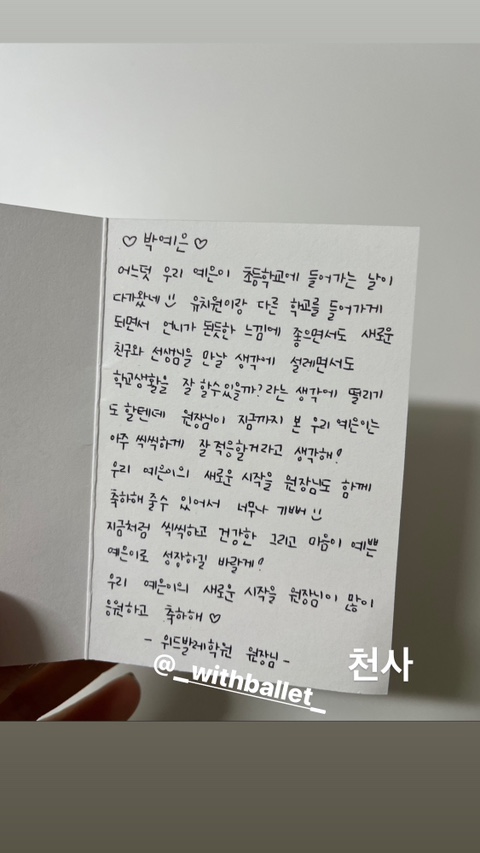 ♡ 박예은 ♡
어느덧 우리 예은이 초등학교에 들어가는 날이
다가왔네 :) 유치원이랑 다른 학교를 들어가게
되면서 언니가 된듯한 느낌에 좋으면서도 새로운
친구와 선생님을 만날 생각에 설레면서도
학교생활을 잘 할수있을까? 라는 생각에 떨리기
도 할텐데 원장님이 지금까지 본 우리 예은이는
아주 씩씩하게 잘 적응할거라고 생각해!
우리 예은이의 새로운 시작을 원장님도 함께
축하해 줄수 있어서 너무나 기뻐 :)
지금처럼 씩씩하고 건강한 그리고 마음이 예쁜
예은이로 성장하길 바랄게!
우리 예은이의 새로운 시작을 원장님이 많이
응원하고 축하해 ♡
- 위드발레학원 원장님 -
천사
@_withballet_